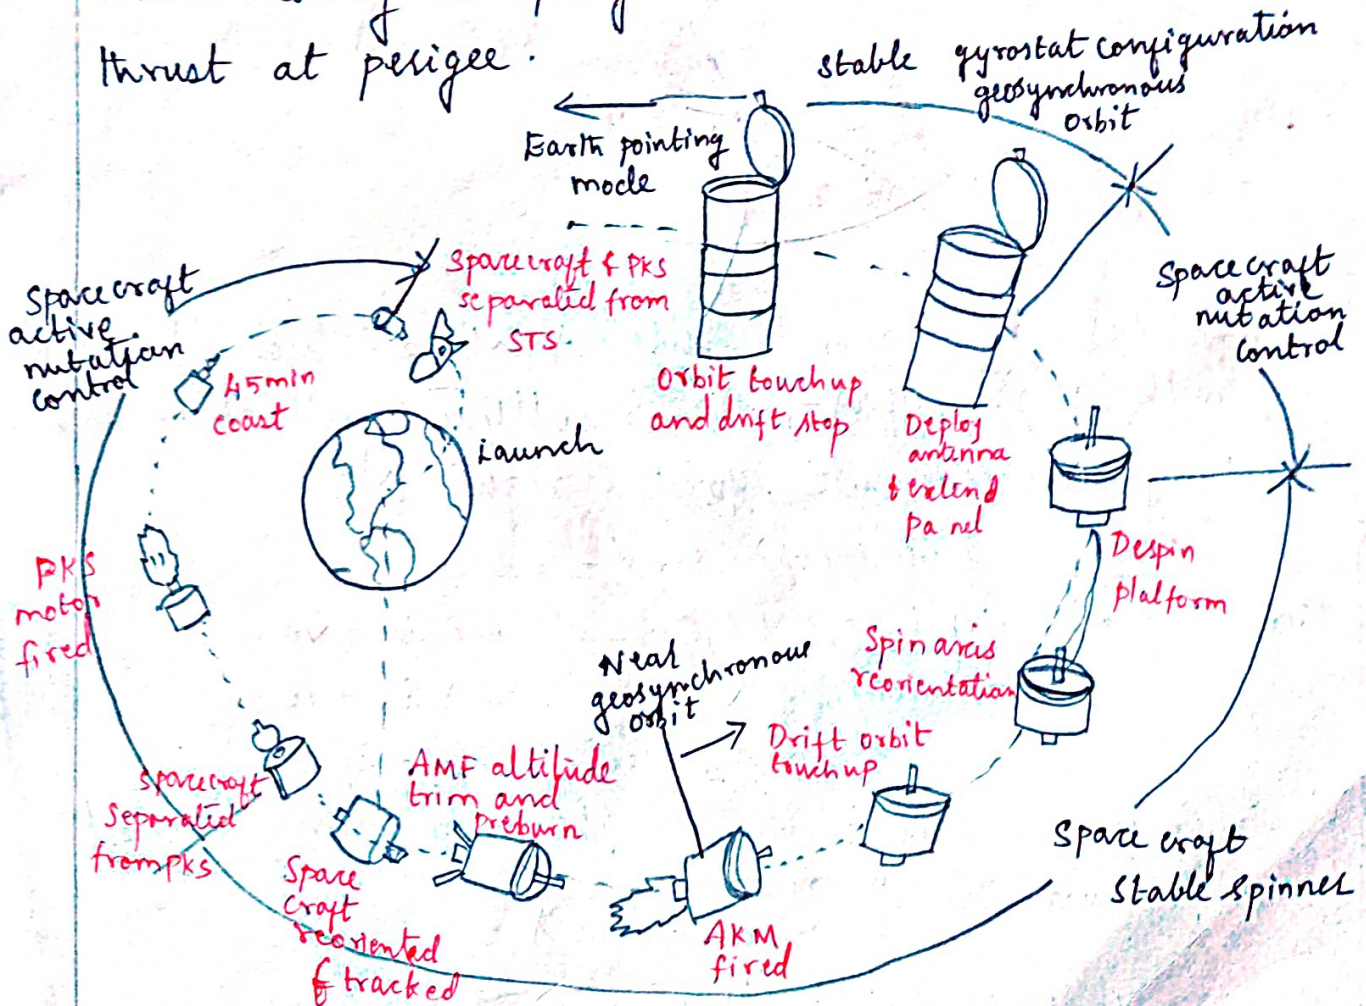 thrust at perigee.
stable gyrostat configuration
geosynchronous
orbit
Earth pointing
mode
Spacecraft & PKS
separated from
STS.
Spacecraft
active
nutation
control
45min
coast
Launch
Orbit touchup
and drift stop
Deploy
antenna
& extend
panel
Spacecraft
active
nutation
control
Despin
platform
PKS
motor
fired
Spin axis
reorientation
Near
geosynchronous
orbit
Drift orbit
touchup
AMF altitude
trim and
preburn
spacecraft
Separated
from pks
Space
Craft
reoriented
& tracked
AKM
fired
Space craft
Stable Spinner